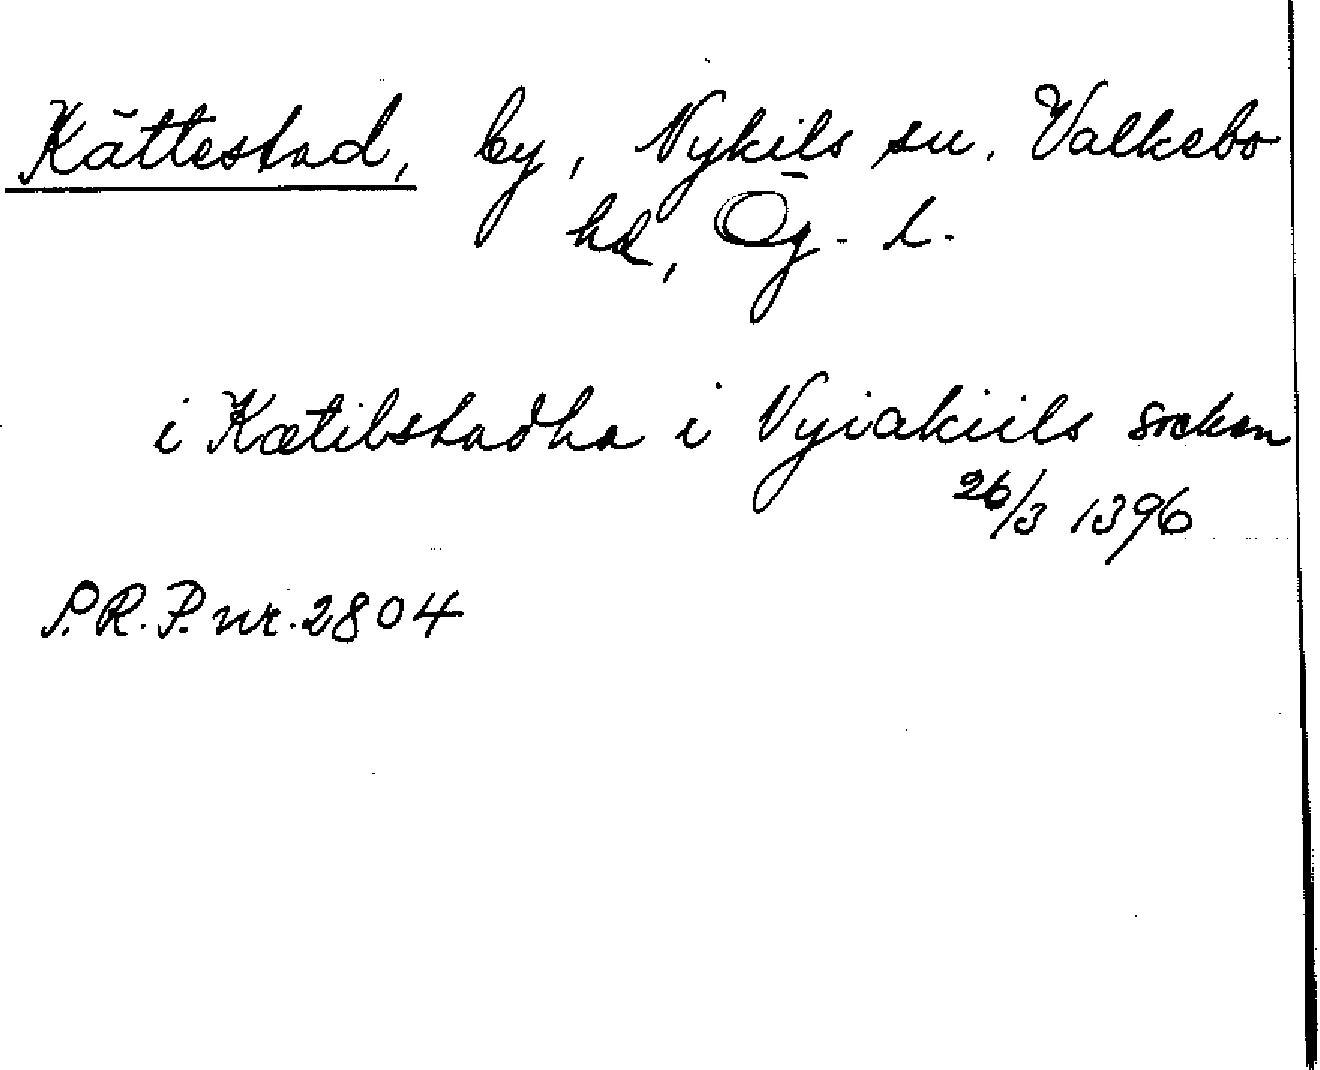 Kättestad, by, Nykils sn. Valkebo
hd, Ög. l.
i Kætilstadha i Nyiakiils sokn
26/3 1396
P.R.P. nr. 2804